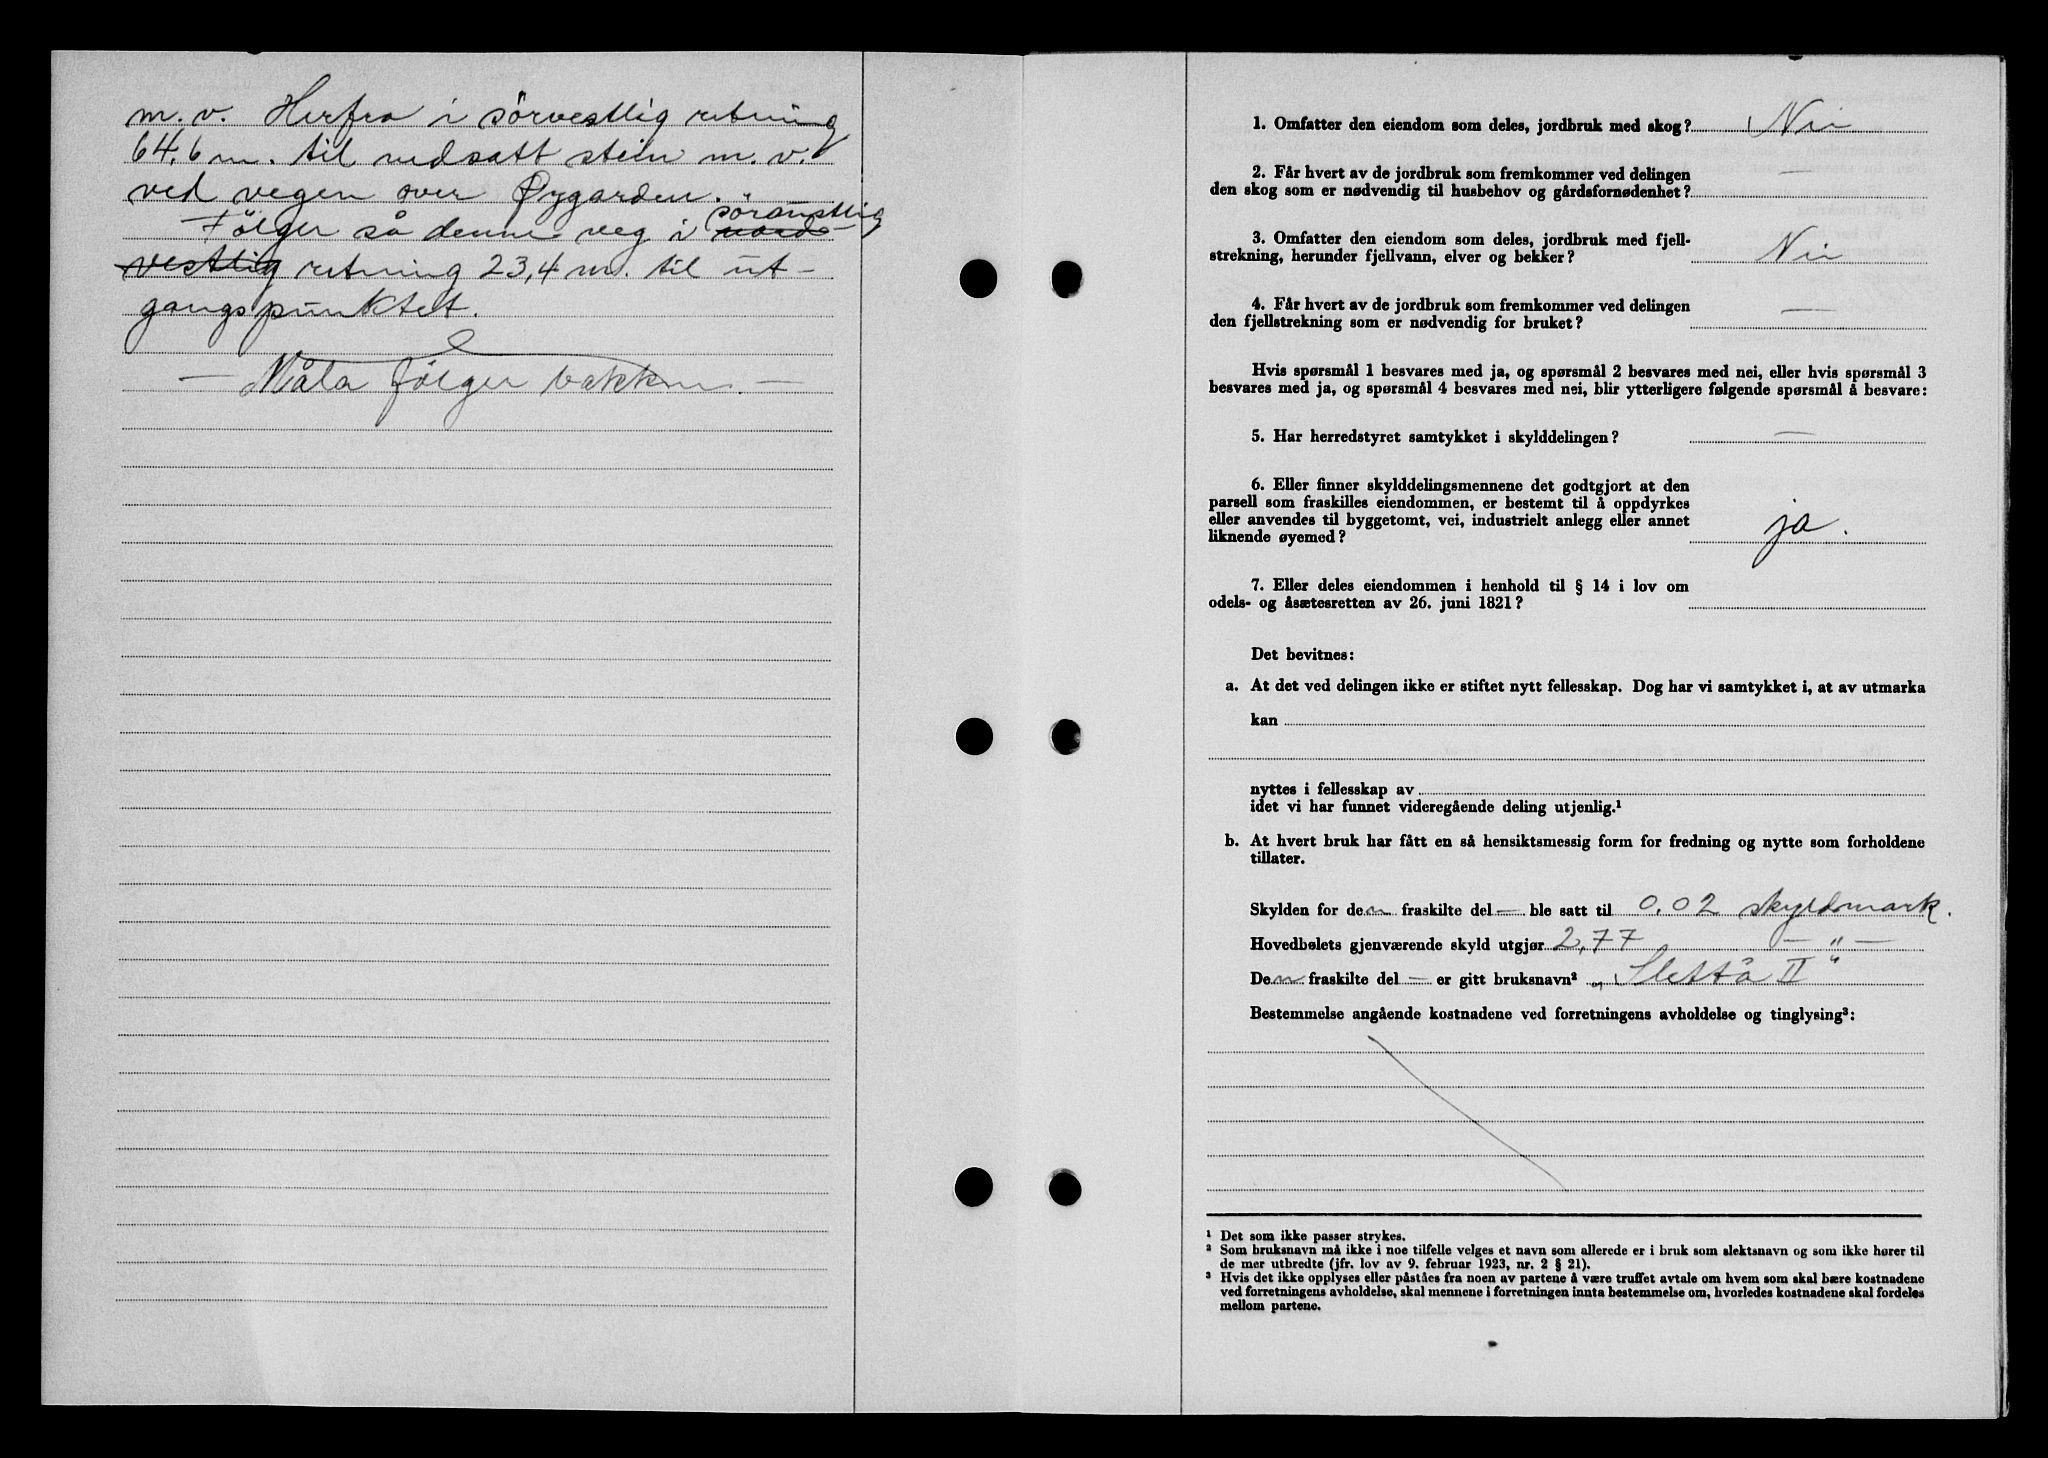 m. v. Herfra i sørvestlig retning
64,6 m. til nedsatt stein m. v.
ved vegen over Øygarden.
søraustlig
Følger så denne veg i nord-
vestlig retning 23,4 m. til ut-
gangspunktet.
— Måla følger bakken. —
1. Omfatter den eiendom som deles, jordbruk med skog? Nei
2. Får hvert av de jordbruk som fremkommer ved delingen
den skog som er nødvendig til husbehov og gårdsfornødenhet? —
3. Omfatter den eiendom som deles, jordbruk med fjell-
strekning, herunder fjellvann, elver og bekker? Nei
4. Får hvert av de jordbruk som fremkommer ved delingen
den fjellstrekning som er nødvendig for bruket? —
Hvis spørsmål 1 besvares med ja, og spørsmål 2 besvares med nei, eller hvis spørsmål 3
besvares med ja, og spørsmål 4 besvares med nei, blir ytterligere følgende spørsmål å besvare:
5. Har herredstyret samtykket i skylddelingen? —
6. Eller finner skylddelingsmennene det godtgjort at den
parsell som fraskilles eiendommen, er bestemt til å oppdyrkes
eller anvendes til byggetomt, vei, industrielt anlegg eller annet
liknende øyemed? ja.
7. Eller deles eiendommen i henhold til § 14 i lov om
odels- og åsætesretten av 26. juni 1821?
Det bevitnes:
a. At det ved delingen ikke er stiftet nytt fellesskap. Dog har vi samtykket i, at av utmarka
kan
nyttes i fellesskap av
idet vi har funnet videregående deling utjenlig.¹
b. At hvert bruk har fått en så hensiktsmessig form for fredning og nytte som forholdene
tillater.
Skylden for den fraskilte del — ble satt til 0.02 skyldmark.
Hovedbølets gjenværende skyld utgjør 2,77 — „ —
Den fraskilte del — er gitt bruksnavn² „Slettå II“
Bestemmelse angående kostnadene ved forretningens avholdelse og tinglysing³:
¹ Det som ikke passer strykes.
² Som bruksnavn må ikke i noe tilfelle velges et navn som allerede er i bruk som slektsnavn og som ikke hører til
de mer utbredte (jfr. lov av 9. februar 1923, nr. 2 § 21).
³ Hvis det ikke opplyses eller påståes fra noen av partene å være truffet avtale om hvem som skal bære kostnadene
ved forretningens avholdelse, skal mennene i forretningen innta bestemmelse om, hvorledes kostnadene skal fordeles
mellom partene.